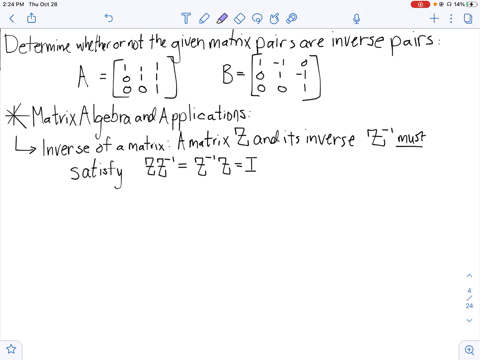 2:24 PM Thu Oct 28
14%
Determine whether or not the given matrix pairs are inverse pairs:
A = [1 1 1
0 1 1
0 0 1]
B = [1 -1 0
0 1 -1
0 0 1]
Matrix Algebra and Applications:
↳ Inverse of a matrix: A matrix Z and its inverse Z⁻¹ must
satisfy ZZ⁻¹ = Z⁻¹Z = I
4
/
24